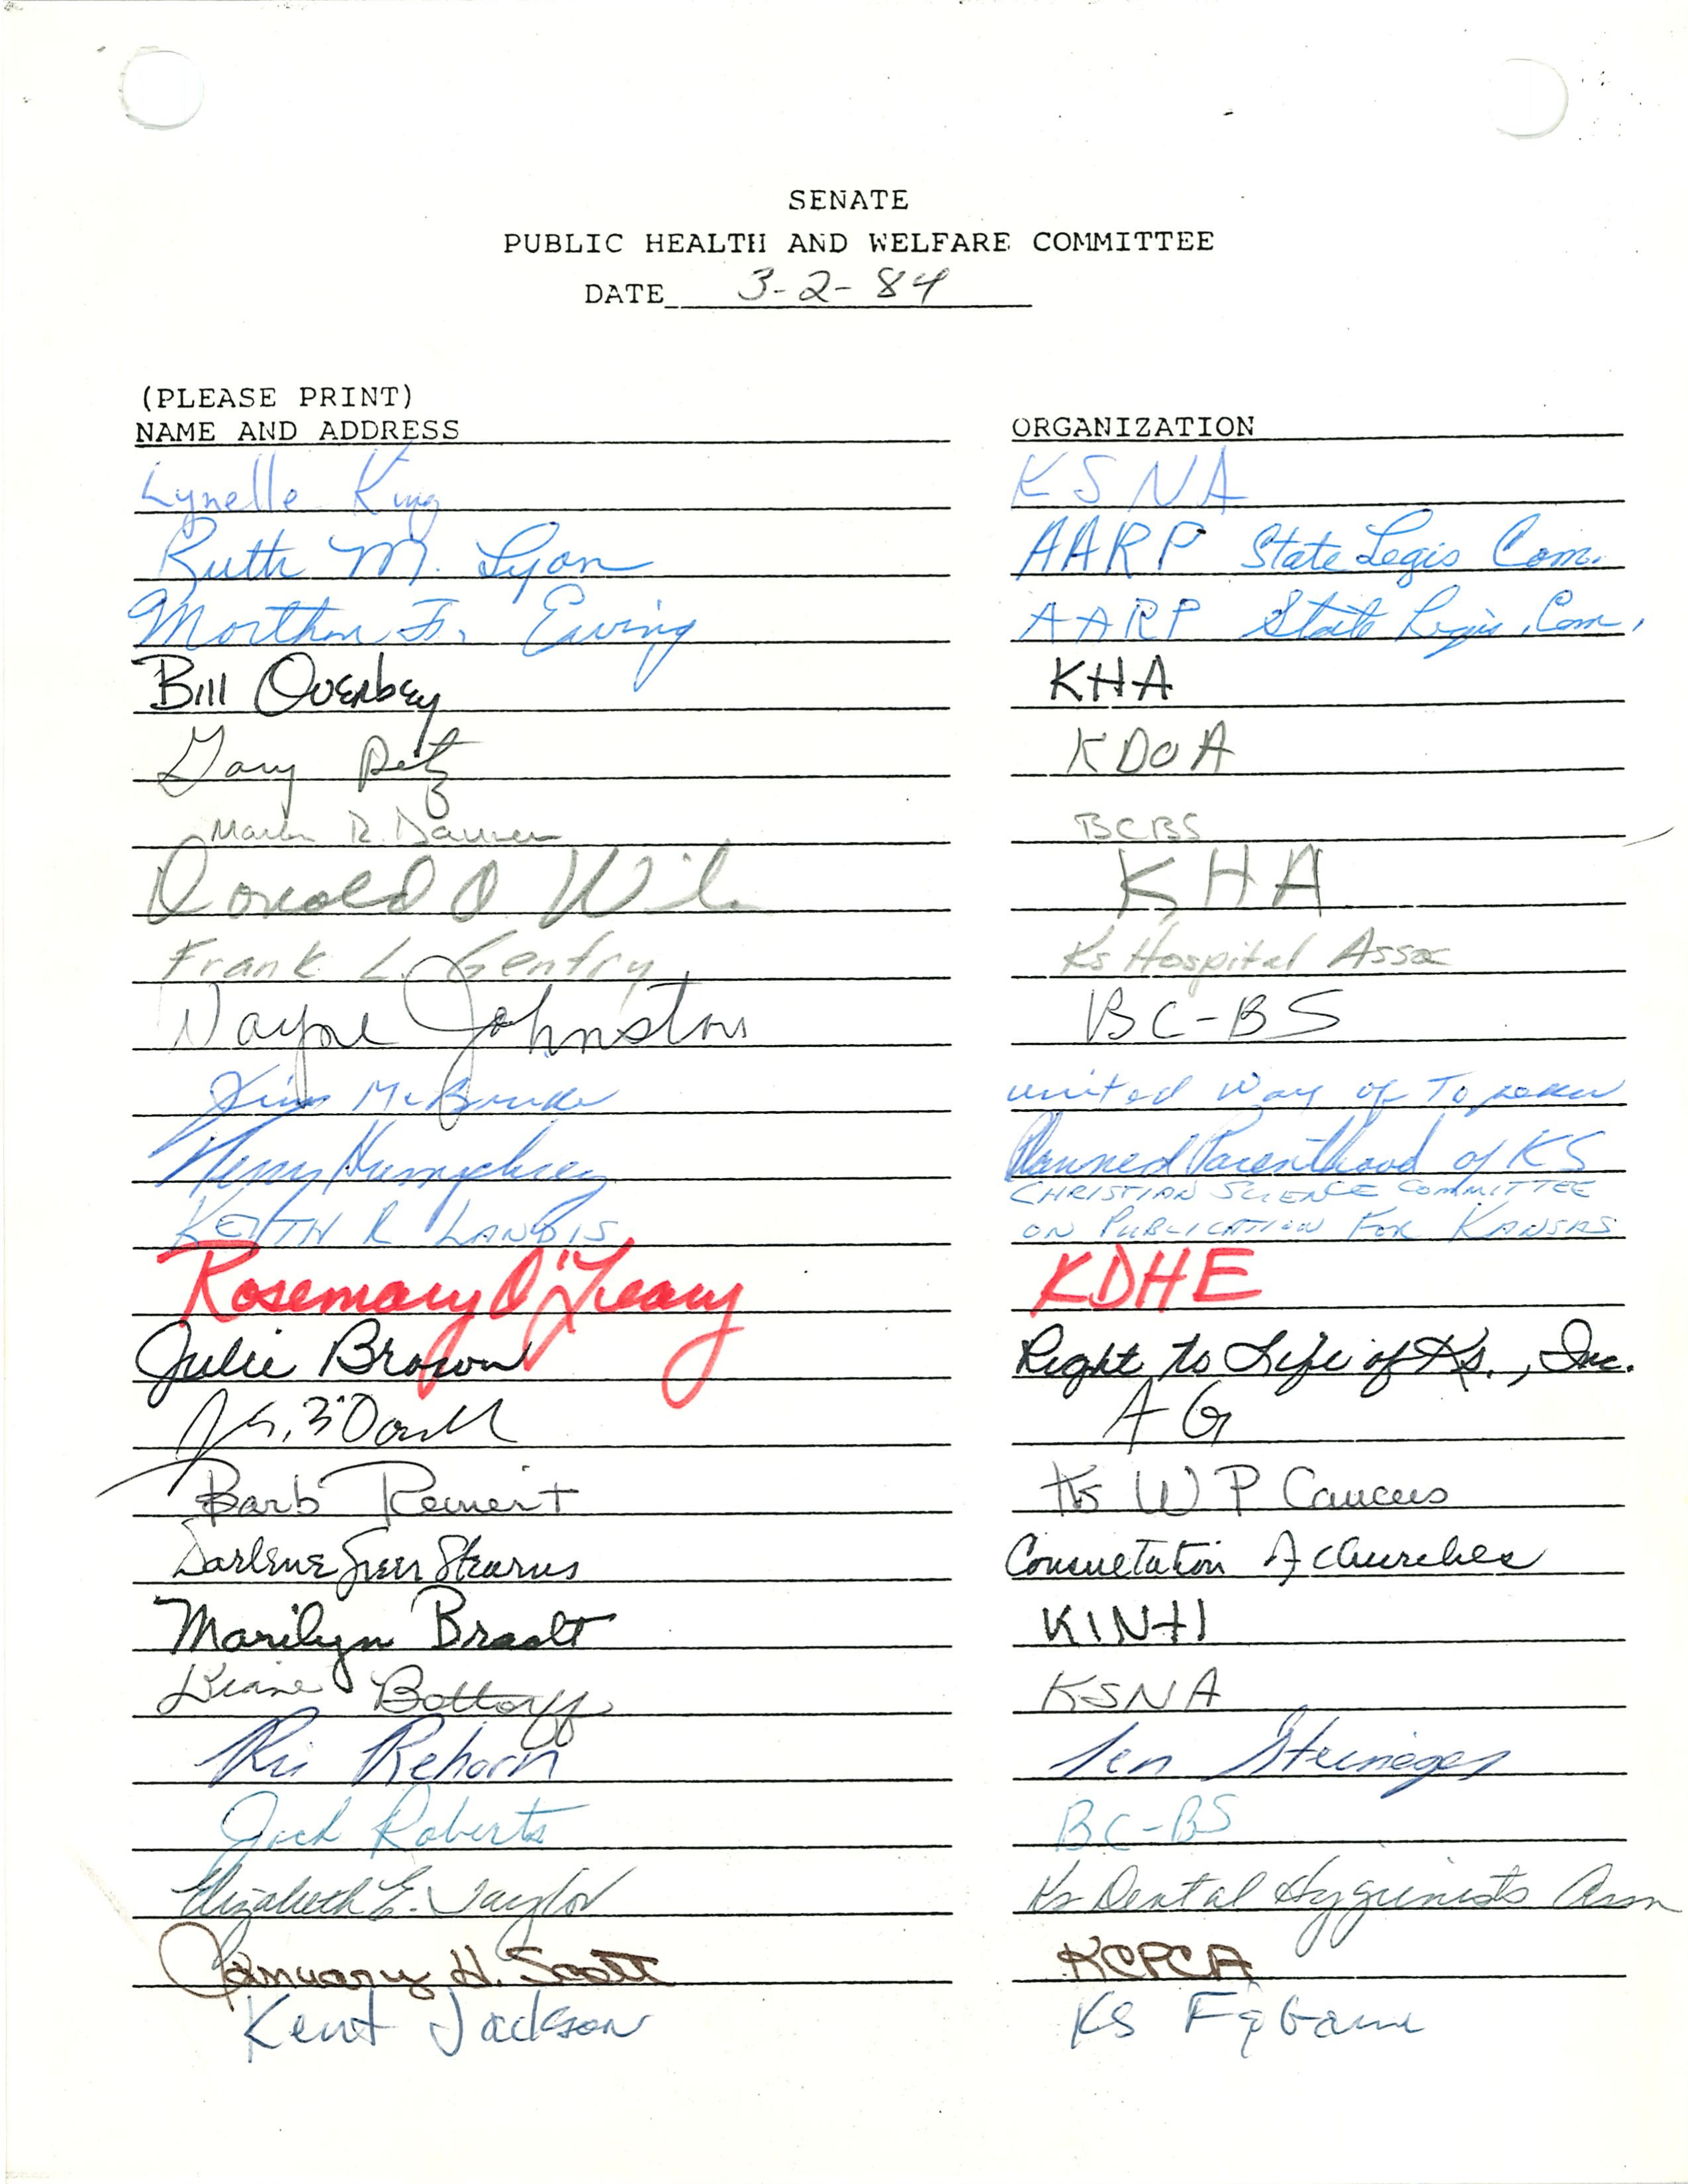 SENATE
PUBLIC HEALTH AND WELFARE COMMITTEE
DATE 3-2-84
(PLEASE PRINT)
NAME AND ADDRESS ORGANIZATION
Lynelle King KSNA
Ruth M. Lyon AARP State Legis Com.
F. Ewing AARP State Legis. Com.
Bill Overbey KHA
Gary KDOA
R. BCBS
Donald A KHA
Frank L. Gentry Ks Hospital Assoc
Wayne Johnston BC-BS
Jim United Way of Topeka
Humphrey Planned Parenthood of KS
KEITH R LANDIS CHRISTIAN SCIENCE COMMITTEE
ON PUBLICATION FOR KANSAS
Rosemary O'Leary KDHE
Julie Brown Right to Life of Ks., Inc.
AG
Barb Reinert Ks W P Caucus
Darlene Greer Stearns Consultation of Churches
Marilyn Bradt KINH
Diane Bottorff KSNA
Rehorn Sen Steineger
Jack Roberts BC-BS
Elizabeth E. Taylor Ks Dental Hygienists Assn
January H. Scott KCPCA
Kent Jackson KS F & Game